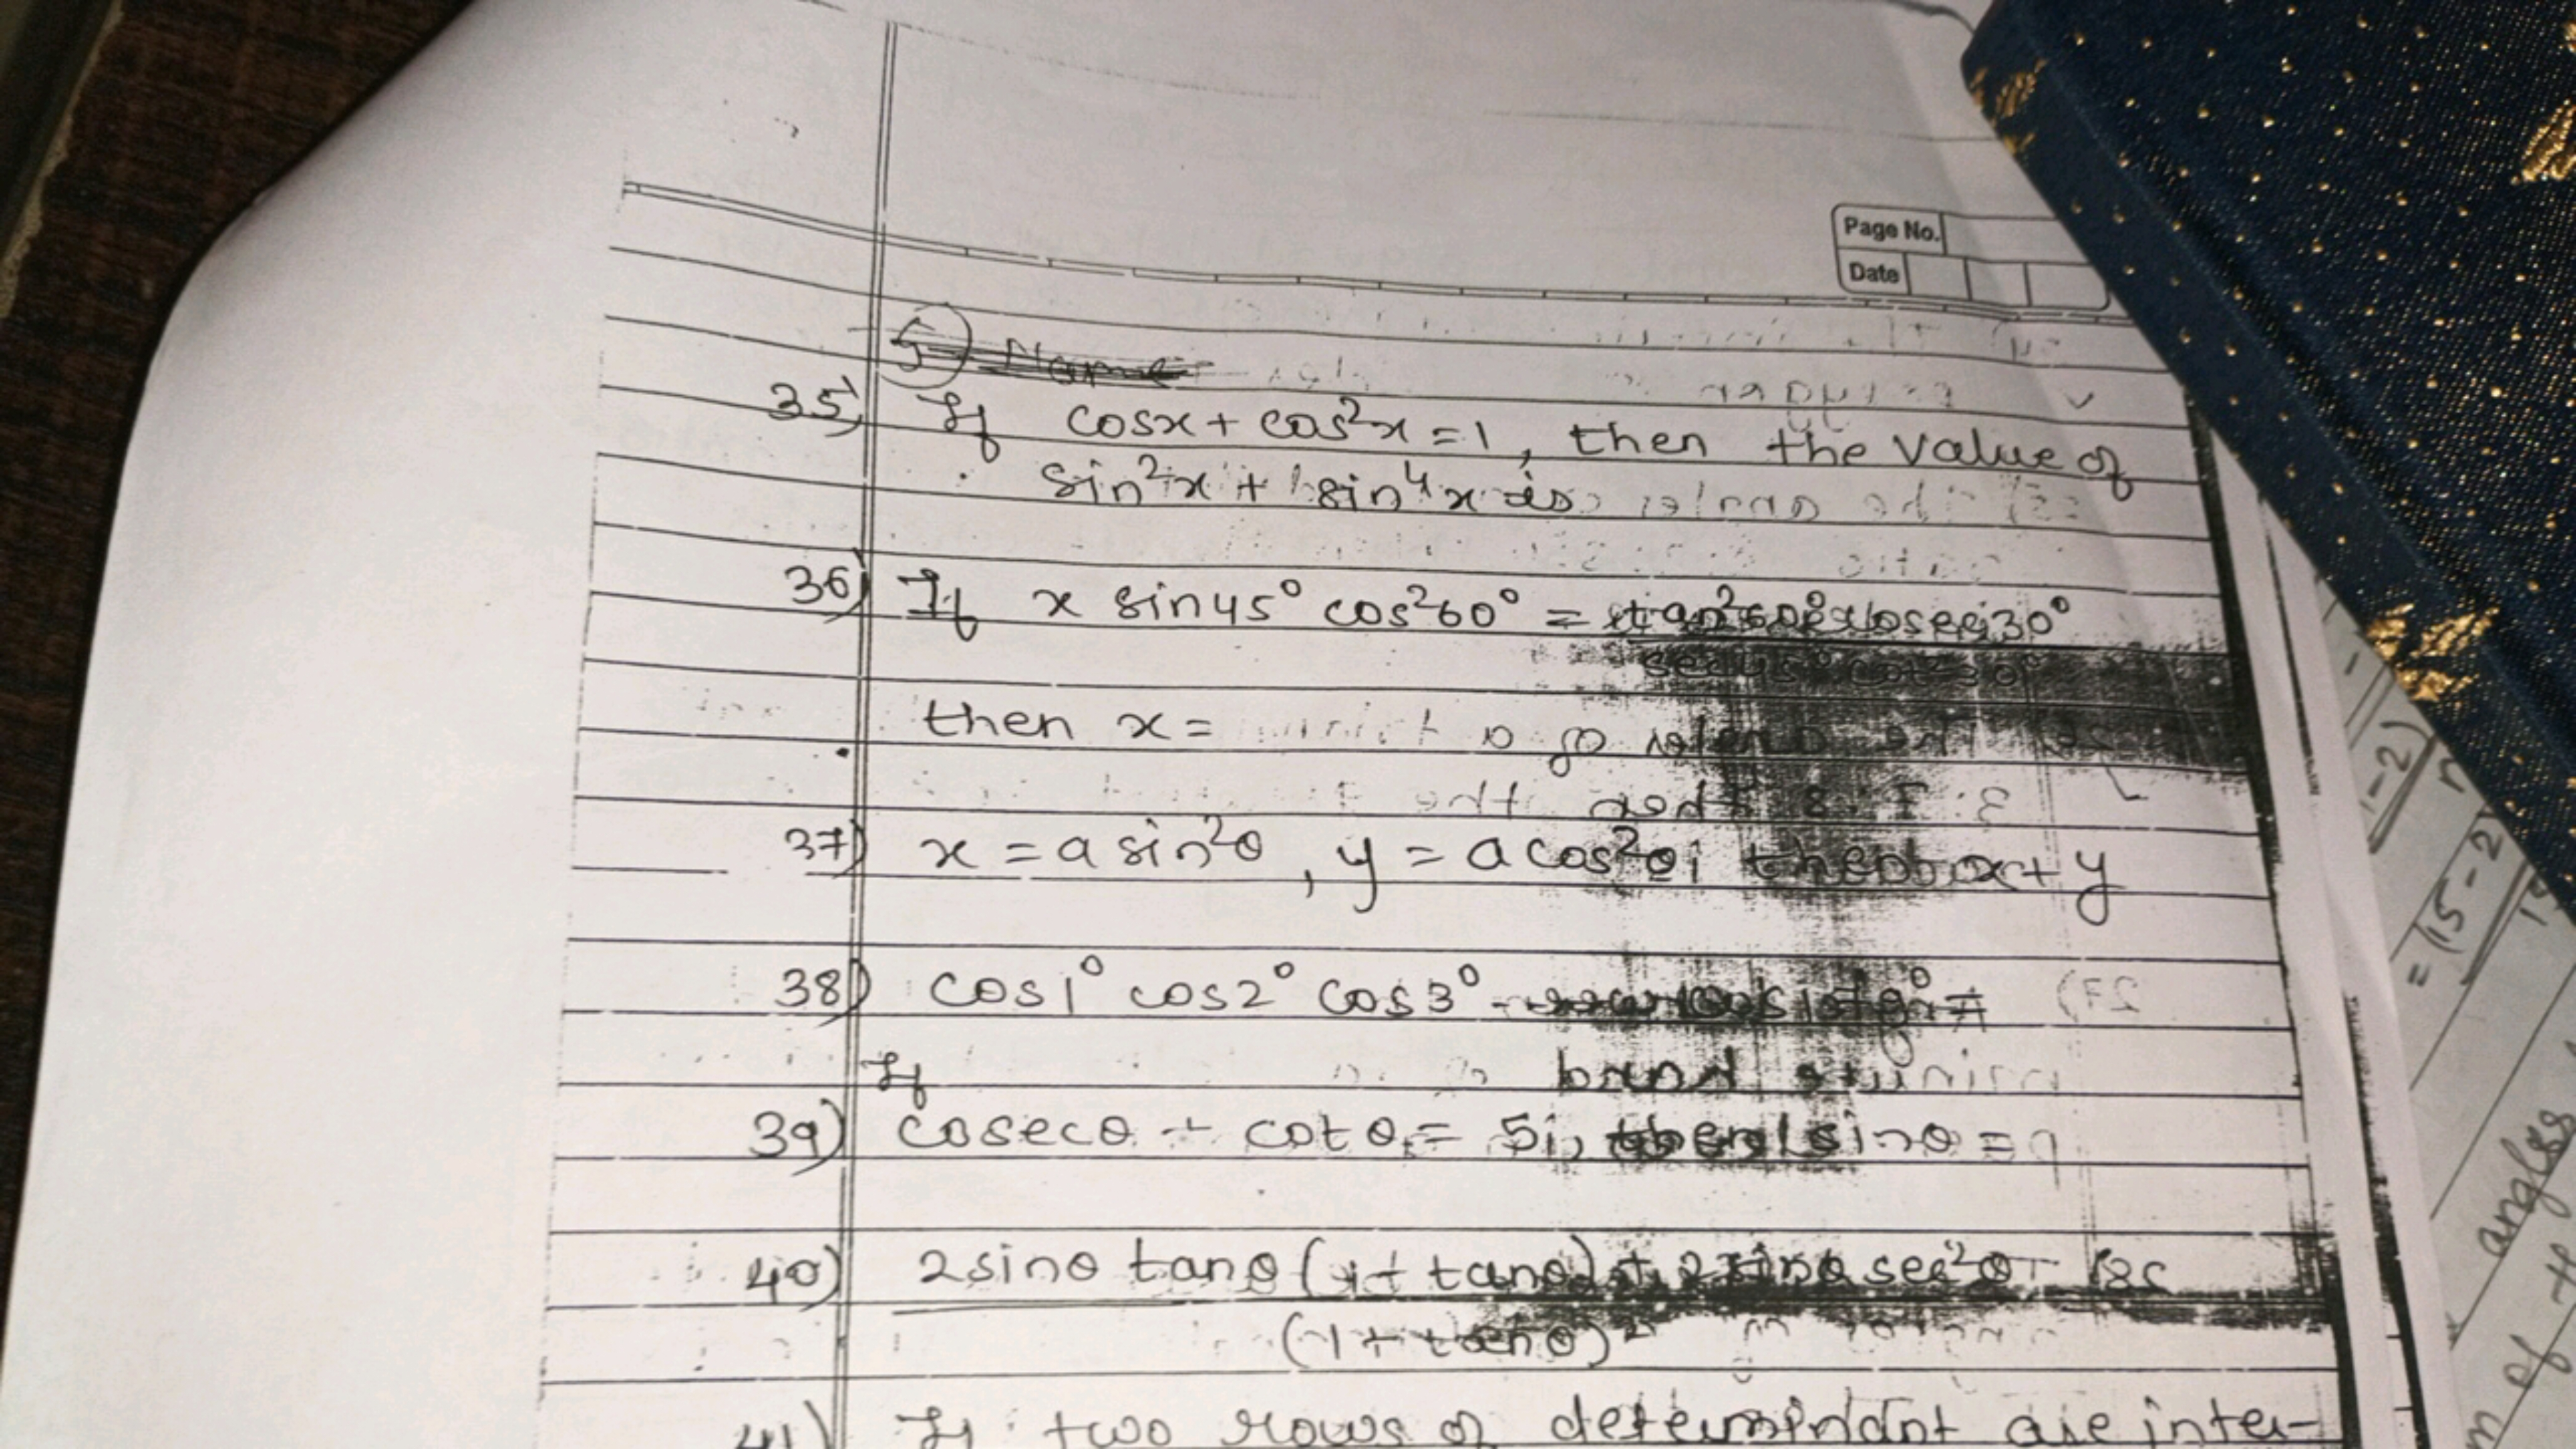 Page No.
Date
5 Name
35) If cosx + cos²x = 1, then the value of
sin²x + sin⁴x is
36) If x sin45° cos²60° = tan²60° cosec30°
sec45° cot²30°
then x =
37) x = a sin²θ, y = a cos²θ, then x + y
38) cos1° cos2° cos3° - - - =
If
39) cosecθ + cotθ = 5, then sinθ =
40) 2sinθ tanθ (1 + tanθ) + 2sinθ sec²θ
(1 + tanθ)²
41) If two rows of determinant are inter-
= (15-2)
angles
of